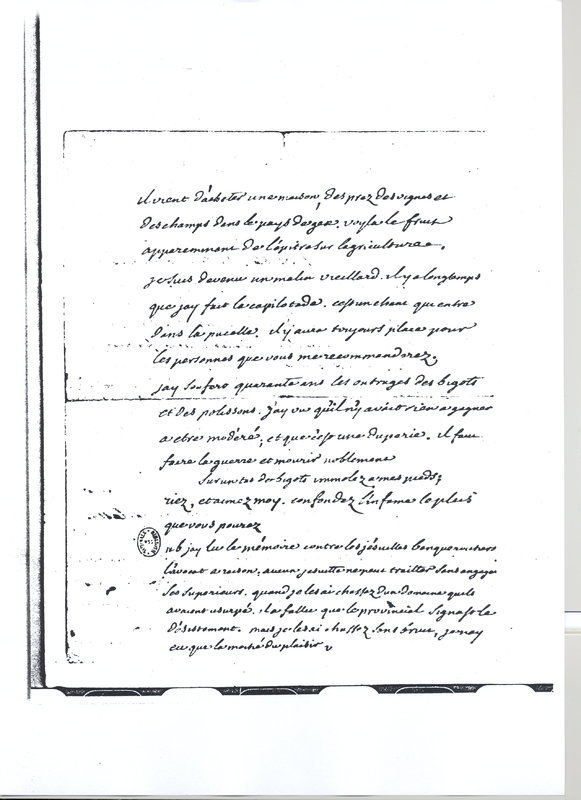 il vient d'acheter une maison, des prez des vignes et
des champs dans le pays de gex. voyla le fruit
apparemment de l'épitre sur l'agriculturae.
je suis devenu un malin vieillard. il y a longtemps
que jay fait la capilotade. cest un chant qui entre
dans la pucelle. il y aura toujours place pour
les personnes que vous me recommanderez.
jay souffert quarante ans les outrages des bigots
et des polissons. j'ay vu qu'il n'y avait rien a gagner
a etre modéré, et que c'est une duperie. il faut
faire la guerre et mourir noblement
sur un tas de bigots immolez a mes pieds,
riez, et aimez moy. confondez l'infame le plus
que vous pourez
nb jay lu le mémoire contre les jésuittes banqueroutiers
l'avocat a raison. aucun jesuitte ne peut traitter sans engager
ses superieurs. quand je les ai chassez d'un domaine quils
avaient usurpé. il a fallu que le provincial signast le
désistement. mais je les ai chassez sans bruit, je nay
eu que la moitié du plaisir v